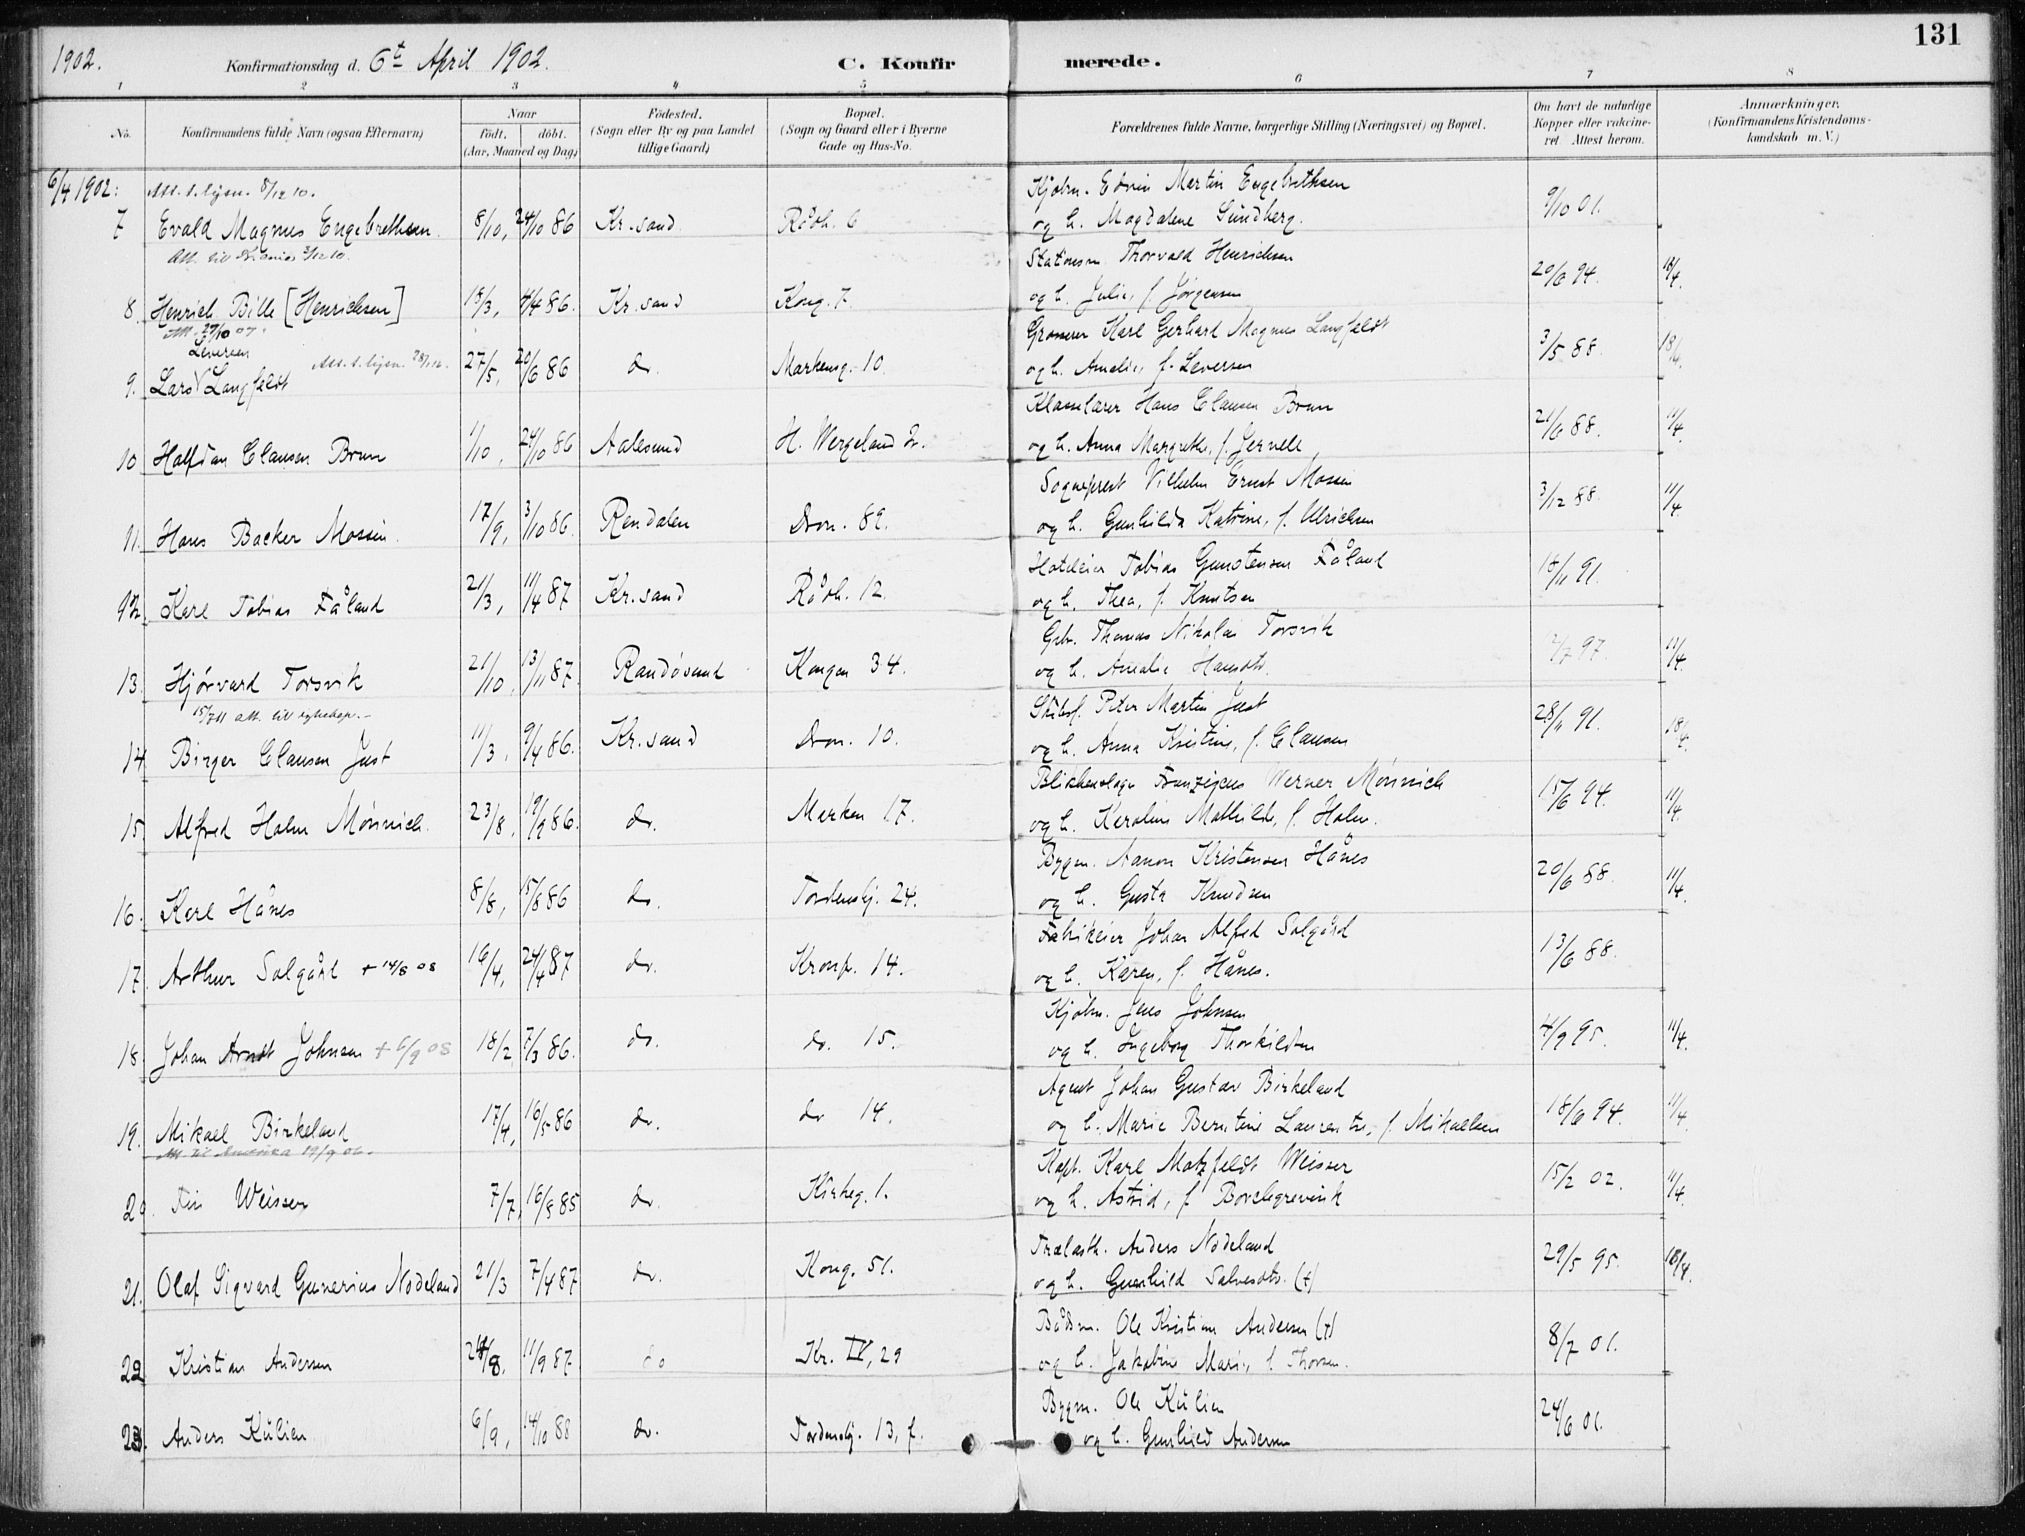 131
1902. Konfirmationsdag d. 6t April 1902. C. Konfirmerede.
1 2 3 4 5 6 7 8
No. Konfirmandens fulde Navn (ogsaa Efternavn) Naar født. døbt. (Aar, Maaned og Dag) Fødested. (Sogn eller By og paa Landet tillige Gaard) Bopæl. (Sogn og Gaard eller i Byerne Gade og Hus-No. Forældrenes fulde Navne, borgerlige Stilling (Næringsvei) og Bopæl. Om havt de naturlige Kopper eller vakcineret. Attest herom. Anmærkninger. (Konfirmandens Kristendomskundskab m. V.)
6/4 1902: Att. t. lysn. 8/12 10. Kjøbm. Edvin Martin Engebrethsen
7 Evald Magnus Engebrethsen. 8/10, 24/10 86 Kr.sand Rådh. 6 og h. Magdalene Sundberg. 9/10 01.
3/12 10. Stationsm. Thorvald Henrichsen
8. Henrich Bille [Henrichsen] 18/3, 4/4 86. Kr.sand Kong. 7. og h. Julie, f. Jørgensen 20/6 94. 18/4.
Att. 29/10 07. Grosserer Karl Gerhard Magnus Langfeldt
Leversen Att. t. lysn.
9. Lars Langfeldt 27/5, 20/6 86 do. Markensg. 10. og h. Amalie, f. Leversen 3/5 88. 18/4.
Klasselærer Hans Clausen Brun
10 Halfdan Clausen Brun 1/10, 24/10 86 Aalesund H. Wergeland 2. og h. Anna Margrethe, f. Jervell 21/6 88. 11/4.
Sogneprest Vilhelm Ernst Mossin
11. Hans Backer Mossin. 17/9, 3/10 86. Rendalen Dron. 89. og h. Gunhilda Katrine, f. Ulrichsen 3/12 88. 11/4.
Hoteleier Tobias Gunstensen Fåland
12. Karl Tobias Fåland 21/3, 11/4 87 Kr.sand Rådh. 12. og h. Thea, f. Knutsen 14/11 91.
Grb. Thomas Nikolai Torsvik
13. Hjørvard Torsvik 21/10. 13/11 87. Randøsund Kongen 34. og h. Amalie Hansdtr. 97. 11/4.
15/7 11 att. til ægteskap. Skibsf. Peter Martin Just
14 Birger Clausen Just 11/3, 9/4 86. Kr.sand Dron. 10. og h. Anna Kristine, f. Clausen 28/11 91. 18/4.
Blikkenslager Franziscus Werner Mönnich
15. Alfred Holm Mönnich. 23/8, 19/9 86. do. Marken 17. og h. Karoline Mathilde, f. Holm. 15/6 94. 11/4
Bygm. Aanon Kristensen Hånes
16. Karl Hånes 8/8, 15/8 86 do. Tordenskj. 24. og h. Gusta Knudsen 20/6 88. 11/4.
Fabrikeier Johan Alfred Solgård
17. Arthur Solgård + 14/8 08 16/4, 24/4 87 do. Kronp. 14. og h. Karen, f. Hånes. 13/6 88.
Kjøbm. Jens Johnsen
18. Johan Arndt Johnsen + 6/9 08 18/2, 7/3 86. do. do. 15. og h. Ingeborg Thorkildsen 4/9 95. 11/4.
Agent Johan Gustav Birkeland
19. Mikael Birkeland 17/4, 16/5 86 do. do 14. og h. Marie Berntine Laurentze, f. Mikaelsen 18/6 94. 11/4.
Att. til Amerika 19/9 06. Kapt. Karl Motzfeldt Weisser
20. Weisser 7/7, 16/8 85 do. Kirkeg. 1. og h. Astrid, f. Borchgrevink 15/2 02. 11/4.
Trælasth. Anders Nodeland
21. Olaf Sigvard Gunerius Nodeland 21/3 7/4 87 do. Kong. 51. og h. Gunhild Salvesdtr. (+) 29/5 95. 18/4.
Bådsm. Ole Kristian Andersen (+)
22 Kristian Andersen 24/8. 11/9 87 do Kr. IV, 29 og h. Jakobine Marie, f. Thorsen. 8/7 01.
Bygm. Ole Kulien
23. Anders Kulien 6/9, 14/10 88 do. Tordenskj. 13, f. og h. Gunhild Andersen 24/6 01.